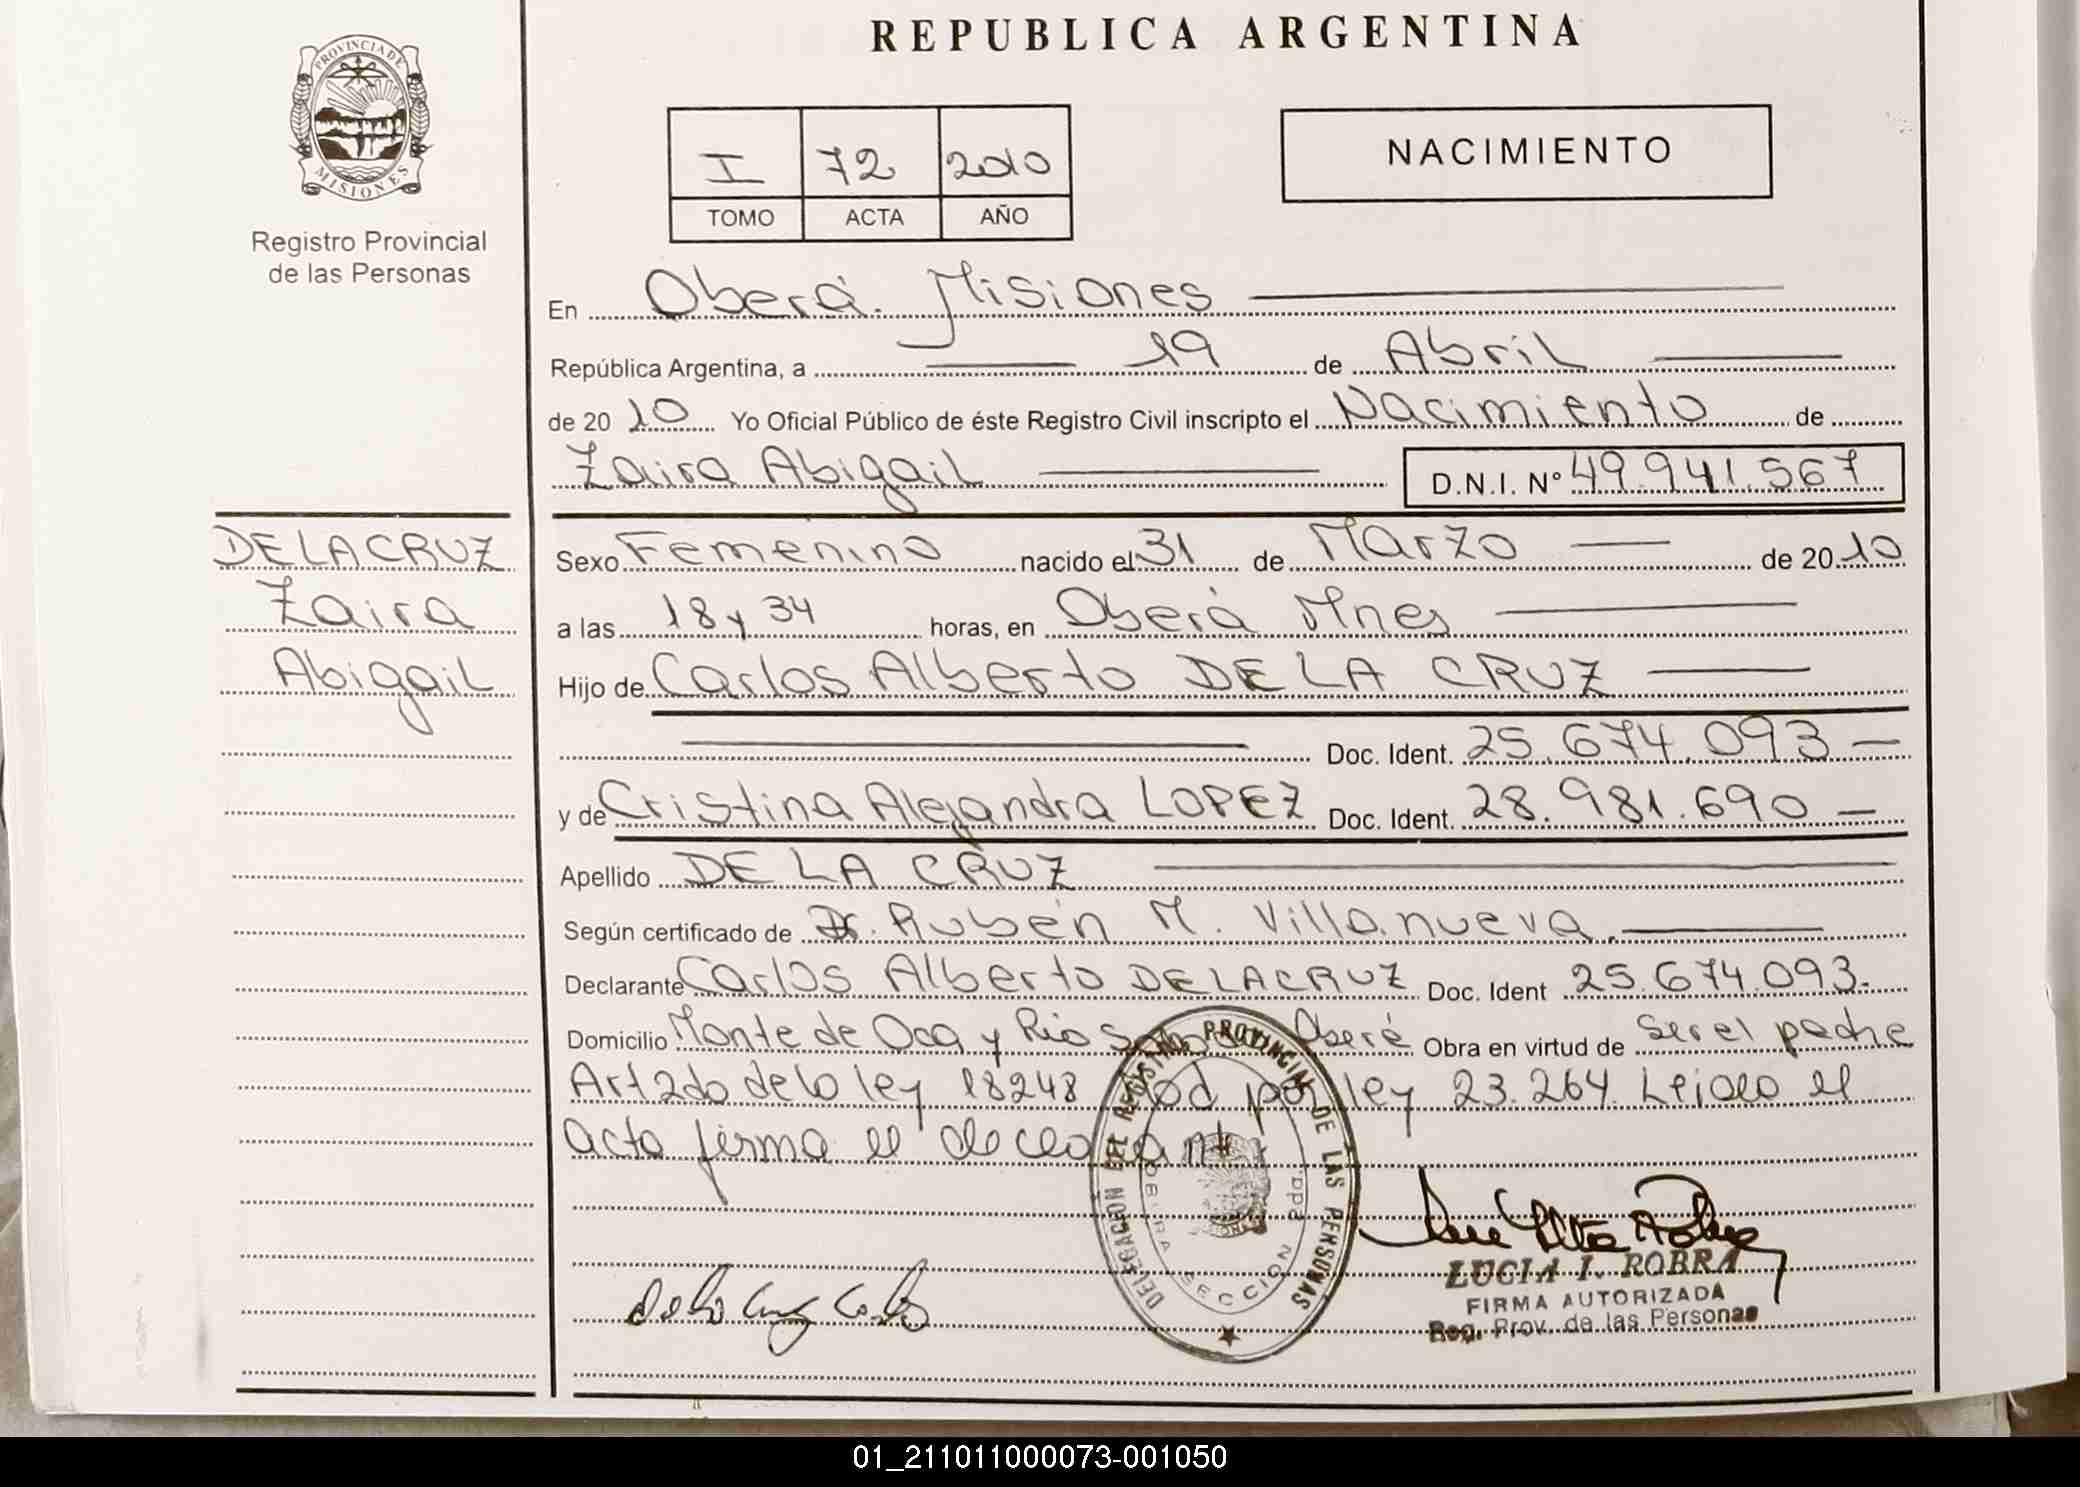 REPUBLICA ARGENTINA
PROVINCIA DE
MISIONES
Registro Provincial
de las Personas
I 72 2010
TOMO ACTA AÑO
NACIMIENTO
En Oberá. Misiones
República Argentina, a 19 de Abril
de 2010 Yo Oficial Público de éste Registro Civil inscripto el Nacimiento de
Zaira Abigail D.N.I. Nº 49.941.567
DE LA CRUZ
Zaira
Abigail
Sexo Femenino nacido el 31 de Marzo de 2010
a las 18 y 34 horas, en Oberá Mnes
Hijo de Carlos Alberto DE LA CRUZ
Doc. Ident. 25.674.093
y de Cristina Alejandra LOPEZ Doc. Ident. 28.981.690
Apellido DE LA CRUZ
Según certificado de Dr. Rubén M. Villanueva.
Declarante Carlos Alberto DE LA CRUZ Doc. Ident 25.674.093.
Domicilio Monte de Oca y Rio Oberá Obra en virtud de ser el padre
Art 2do de la ley 18248 Mod por ley 23.264. Leida el
acta firma el declarante
DELEGACION DEL REGISTRO PROVINCIAL DE LAS PERSONAS
SECCION 2da.
De la Cruz Carlos
LUCIA I. ROBRA
FIRMA AUTORIZADA
Reg. Prov. de las Personas
01_211011000073-001050